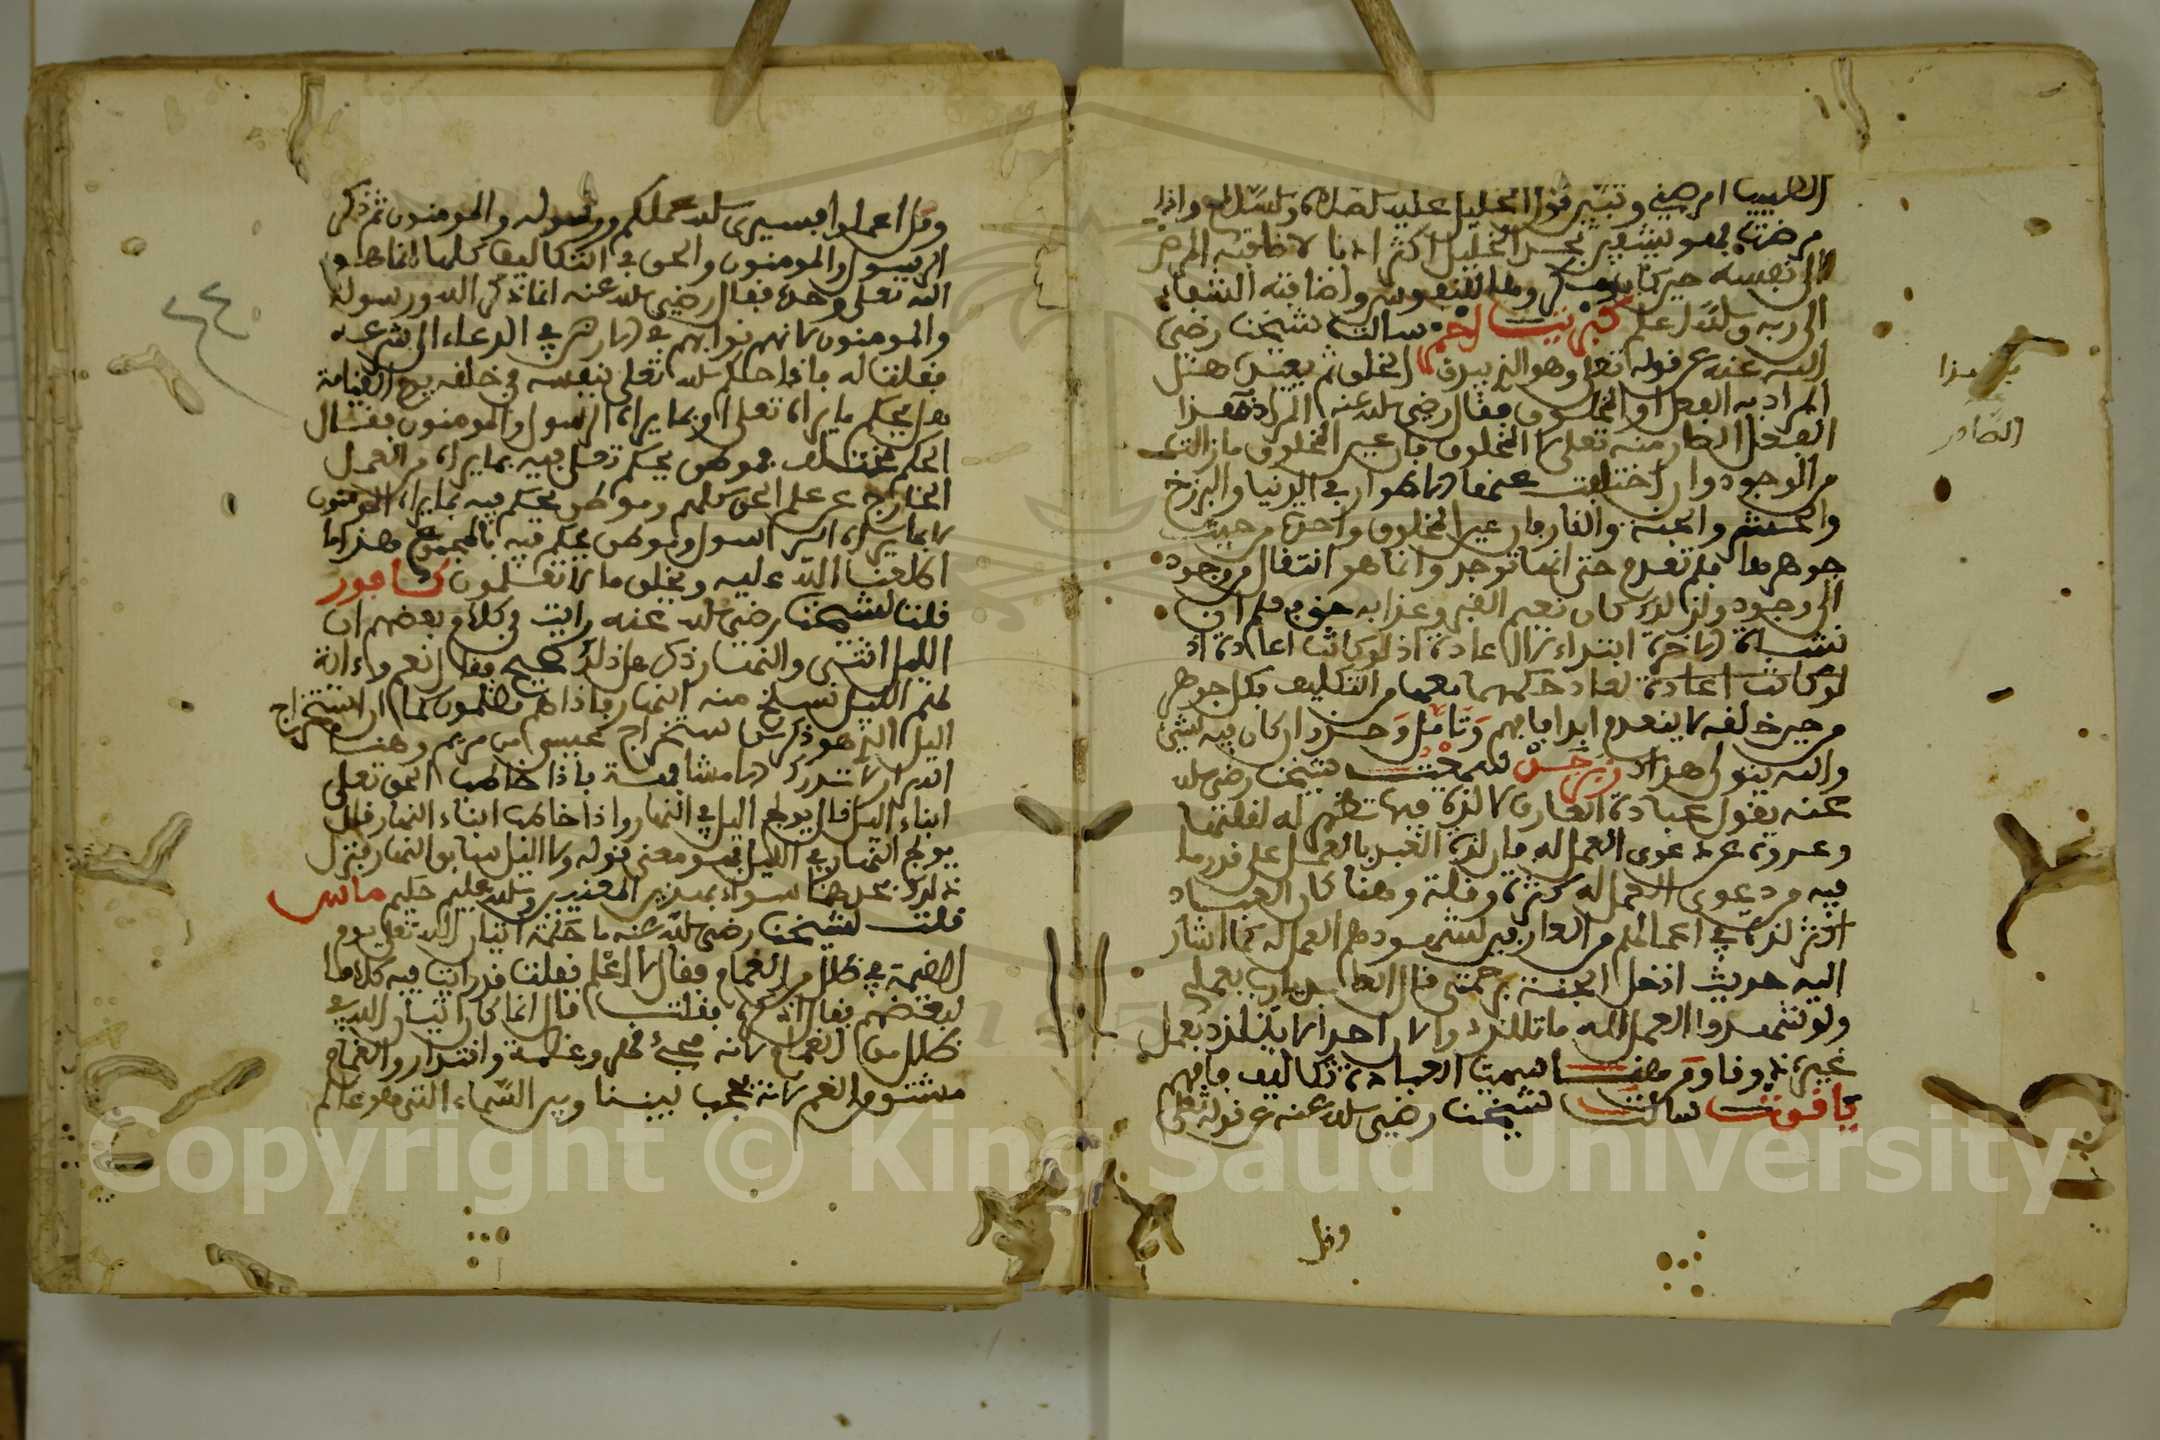 الطبيب امرضني وتبين قول الخليل عليه الصلاة والسلام واذا
مرضت فهو يشفين تجد الخليل اكثر ادبا لاضافته المرض
الى نفسه حين كان مكروها للنفوس واضافته الشفاء
الى ربه والله اعلم كبريت احمر سالت شيخنا رضي
الله عنه عن قوله تعلى وهو الذي يبدؤ الخلق ثم يعيده هل
المراد به الفعل او المخلوق فقال رضي الله عنه المراد هنا
الفعل الصادر منه تعلى لا المخلوق فان عين المخلوق ما زالت
من الوجود وان اختلفت عنها الاطوار في الدنيا والبرزخ
والحشر والجنة والنار فان عين المخلوق واحدة من حيث
جوهرها فلم تعدم حتى انها توجد وانما هو انتقال من وجود
الى وجود ولذلك كان نعيم القبر وعذابه حق فعلم ان
نشاة الاخرة ابتداء لا اعادة اذ
لو كانت اعادة لعاد حكمها معها من التكليف فكل جوهر
من حين خلقه لا ينعدم ابدا فافهم وتامل وحرر ان كان فيه شيء
والله يتولى هداك زبرجد سمعت شيخنا رضي الله
عنه يقول عبادة العارف لا لذة فيها تظهر له لغلبتها
وعدوه عن دعوى العمل له فان لذة العبد بالعمل على قدر ما
فيه من دعوى العمل له كثرة وقلة وهنا كان العباد
اكثر لذة في اعمالهم من العارفين لشهودهم العمل له كما اشار
اليه حديث ادخل الجنة برحمتي قال العابد يارب بعملي
ولو شهدوا العمل لله ما تلذذوا لان احدا لا يتلذذ بعمل
غيره ذوقا ومن هنا سميت العبادة تكاليف فافهم
ياقوت سالت شيخنا رضي الله عنه عن قوله تعلى
وقل
هذا
الصادر
وقل اعملوا فسيرى الله عملكم ورسوله والمومنون ثم ذكر
الرسول والمومنون والحق في التكاليف كلها انما هو
الله تعلى وحده فقال رضي الله عنه انما ذكر الله ورسوله
والمومنون لانهم نوابهم في الارض في الدعاء الى شرعه
فقلت له فاذا حكم الله تعلى بنفسه في خلقه يوم القيامة
هل يحكم ما يراه تعلى او بما يراه الرسول والمومنون فقال
الحكم مختلف فموطن يحكم تعلى فيه بما يراه من العمل
الخارج عن علم الحق كلهم وموطن يحكم فيه بما يراه المومنون
لا بما يراه الرسول وموطن يحكم فيه بالمجموع هذا ما
اطلعنا الله عليه ويخلق ما لا تعلمون كافور
قلت لشيخنا رضي الله عنه رايت في كلام بعضهم ان
الليل انثى والنهار ذكر هل ذلك صحيح فقال نعم واية
لهم الليل نسلخ منه النهار فاذا هم مظلمون كما ان استخراج
اليل الذي هو ذكر استخراج عيسى من مريم وهنا
اسرار لا تدرك الا مشافهة فاذا خاطب الحق تعلى
ابناء اليل قال يولج اليل في النهار واذا خاطب ابناء النهار قال
يولج النهار في الليل فهو معنى قوله ولا الليل سابق النهار فنزل
ذلك يحل هنا سواء والله عليم حكيم ماس
قلت لشيخنا رضي الله عنه ما حكمة اتيان الله تعلى يوم
القيمة في ظلل من الغمام فقال لا اعلم فقلت قد رايت فيه كلاما
لبعضهم فقال اذكره فقلت قال انما كان اتيان الله في
ظلل من الغمام لانه مجئ قهر وعظمة واقتدار والغمام
مشتق من الغم لانه يحجب بيننا وبين السماء التي هو عالم
٤٤